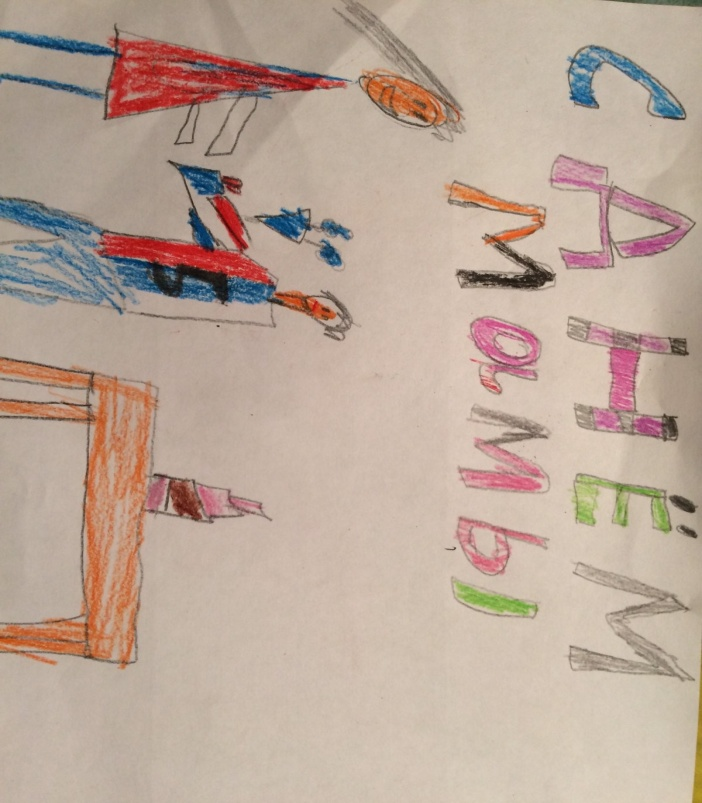 С АНЁМ
МамЫ
5